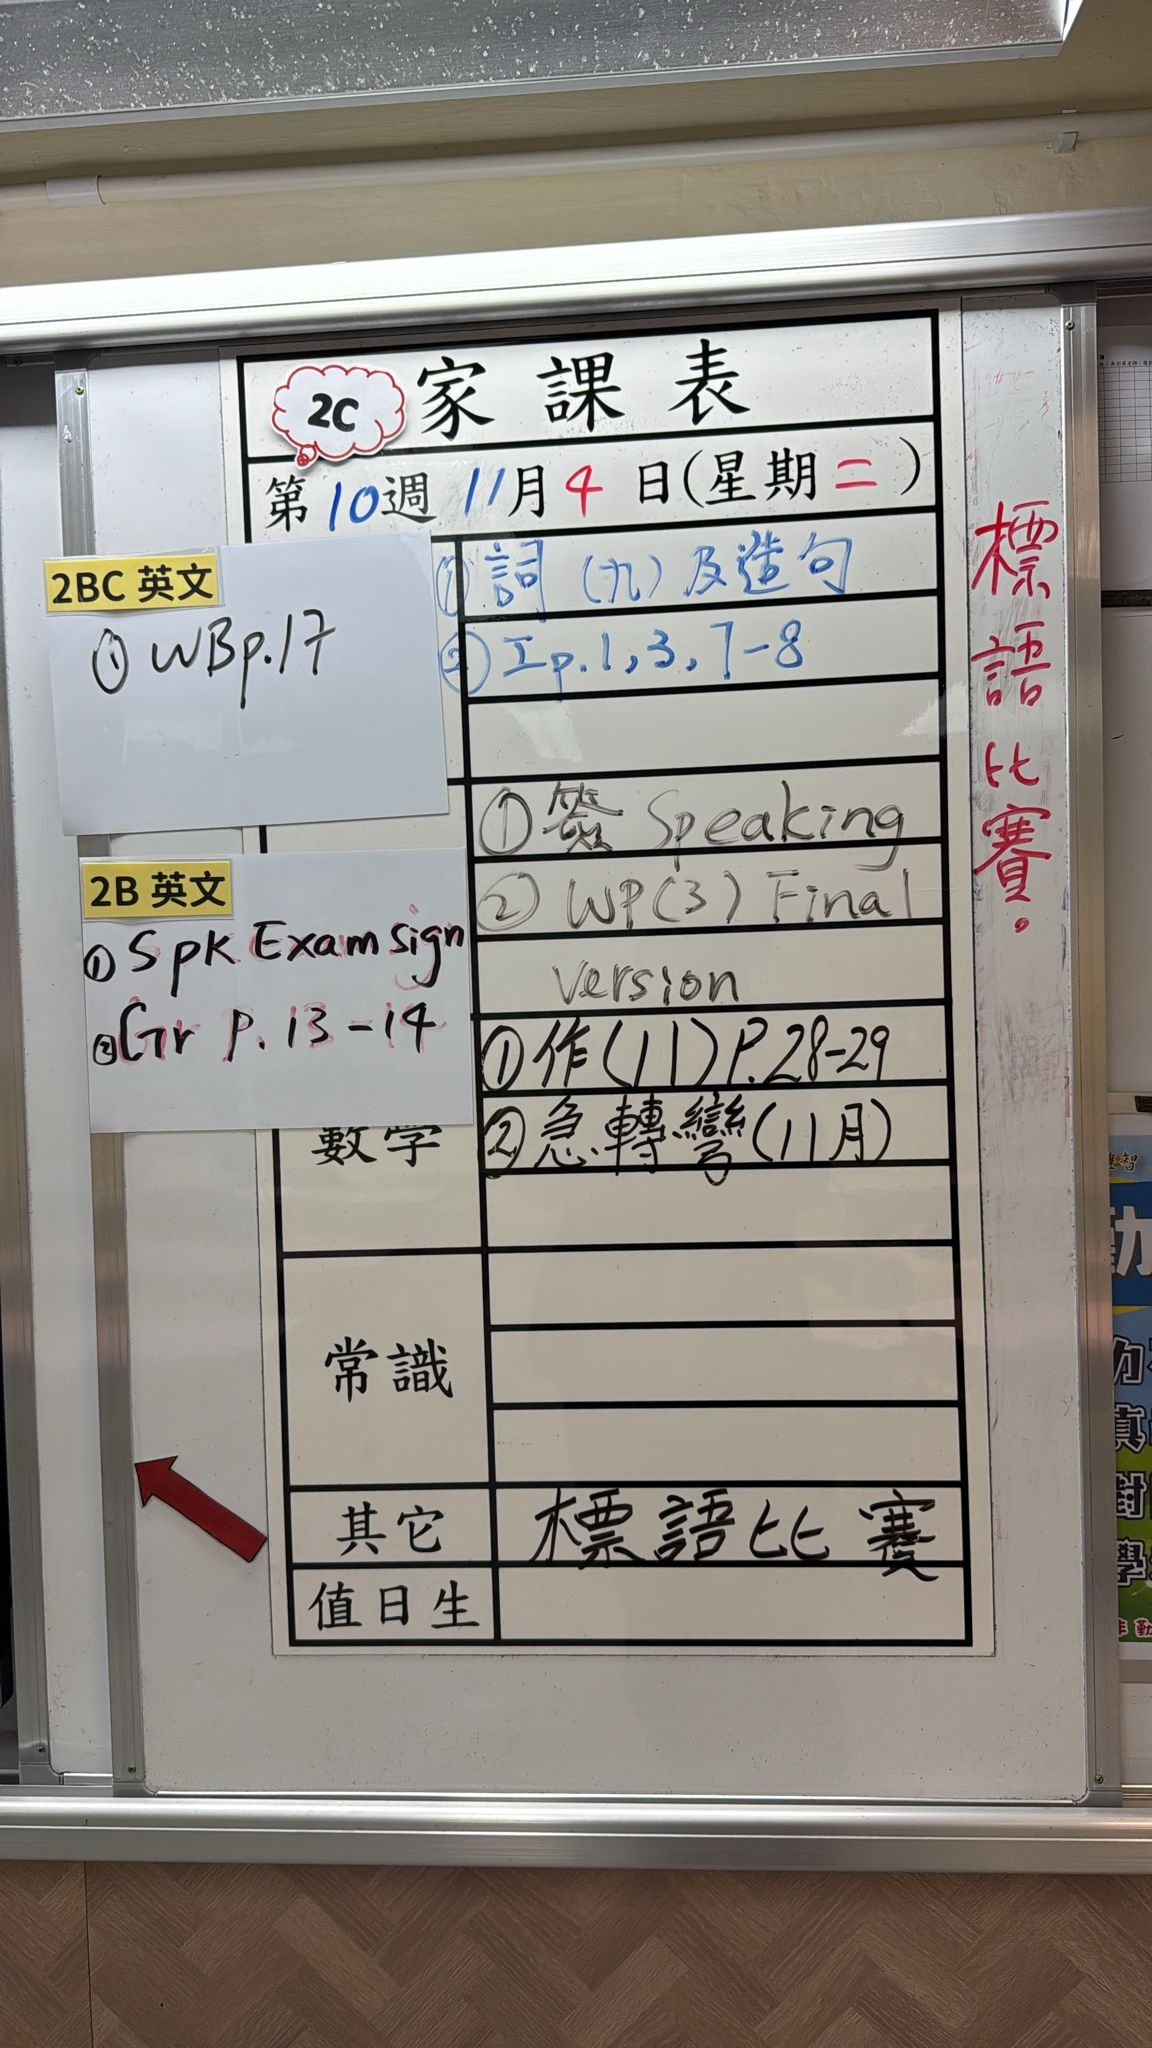 2C
家課表
第10週 11月4日(星期二)
① 詞（九）及造句
② 工p.1,3,7-8
2BC 英文
① WBp.17
① 簽 Speaking
② WP(3) Final
version
2B 英文
① Spk Exam sign
② Gr P.13-14
數學
① 作(11)P.28-29
② 急轉彎(11月)
常識
其它
標語比賽
值日生
標語比賽。